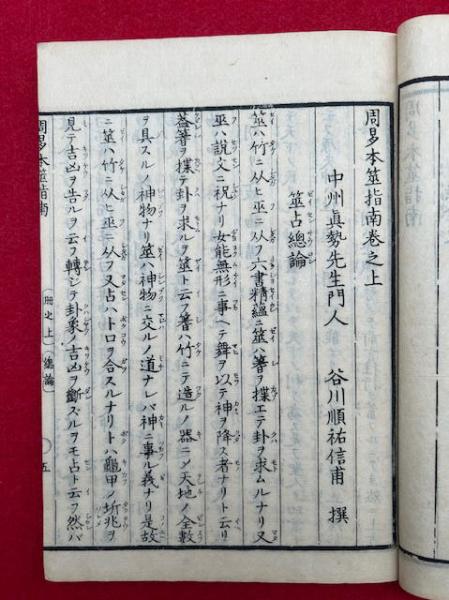 周易本筮指南卷之上
中州眞勢先生門人 谷川順祐信甫 撰
筮占總論
筮ハ竹ニ从ヒ巫ニ从フ六書精蘊ニ筮ハ蓍ヲ揲エテ卦ヲ求ムルナリ又
巫ハ説文ニ祝ナリ女能無形ニ事ヘテ舞ヲ以テ神ヲ降ス者ナリト云リ
蓋蓍ヲ揲テ卦ヲ求ルヲ筮ト云フ蓍ハ竹ニテ造ルノ器ニシテ天地ノ全數
ヲ具スルノ神物ナリ筮ハ神物ニ交ルノ道ナレバ神ニ事ル義ナリ是故
ニ筮ハ竹ニ从ヒ巫ニ从フ又占ハ卜口ヲ合スルナリトハ龜甲ノ坼兆ヲ
見テ吉凶ヲ告ルヲ云フ轉ジテ卦象ノ吉凶ヲ斷ズルヲモ占ト云フ然バ
周易本筮指南
冊之上
總論
五